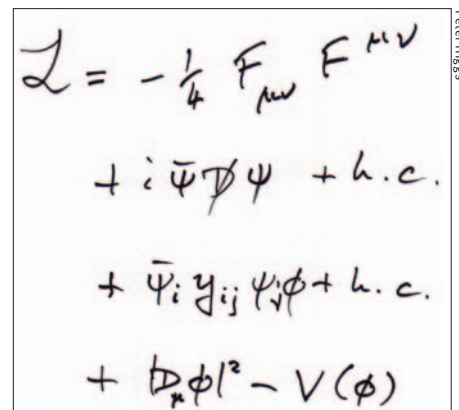 ℒ = -¼ F_μν F^μν
+ i ψ̄ D̸ ψ + h.c.
+ ψ̄_i y_ij ψ_j φ + h.c.
+ |D_μ φ|² - V(φ)
Peter Higgs